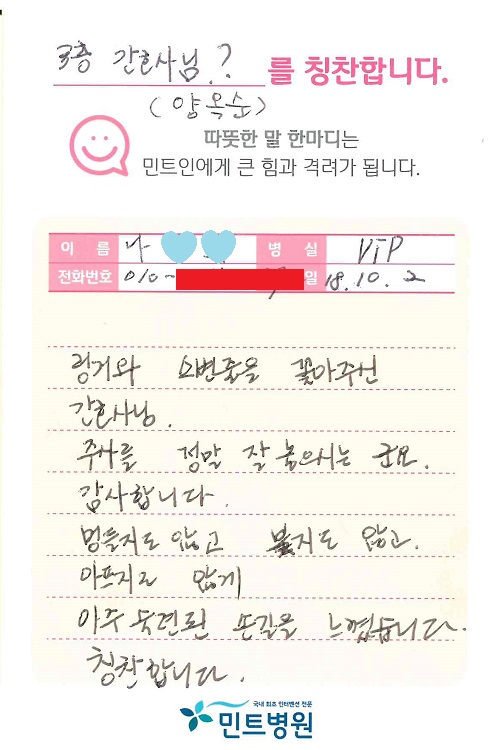 3층 간호사님? 를 칭찬합니다.
(양옥순)
따뜻한 말 한마디는
민트인에게 큰 힘과 격려가 됩니다.
이 름 나 병 실 VIP
전화번호 010- 일 18.10.2
링거와 소변줄을 꽂아주신
간호사님.
주사를 정말 잘 놓으시는 군요.
감사합니다.
멍들지도 않고 붓지도 않고.
아프지도 않게
아주 숙련된 손길을 느꼈습니다.
칭찬합니다.
국내 최초 인터벤션 전문
민트병원